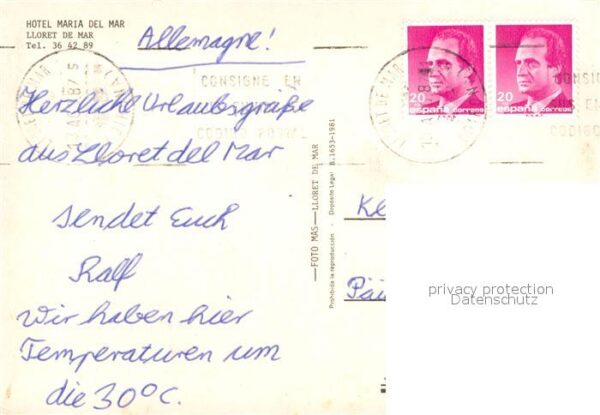 HOTEL MARIA DEL MAR
LLORET DE MAR
Tel. 36 42 89
Allemagne!
Herzliche Urlaubsgrüße
aus Lloret del Mar
sendet Euch
Ralf
Wir haben hier
Temperaturen um
die 30°C.
FOTO MAS — LLORET DE MAR
Prohibida la reproducción - Depósito Legal B. 1653-1981
20
españa correos
20
españa correos
CONSIGNE EN
CODIGO POSTAL
LLORET DE MAR
CONSIGNE
EN
CODIGO
privacy protection
Datenschutz